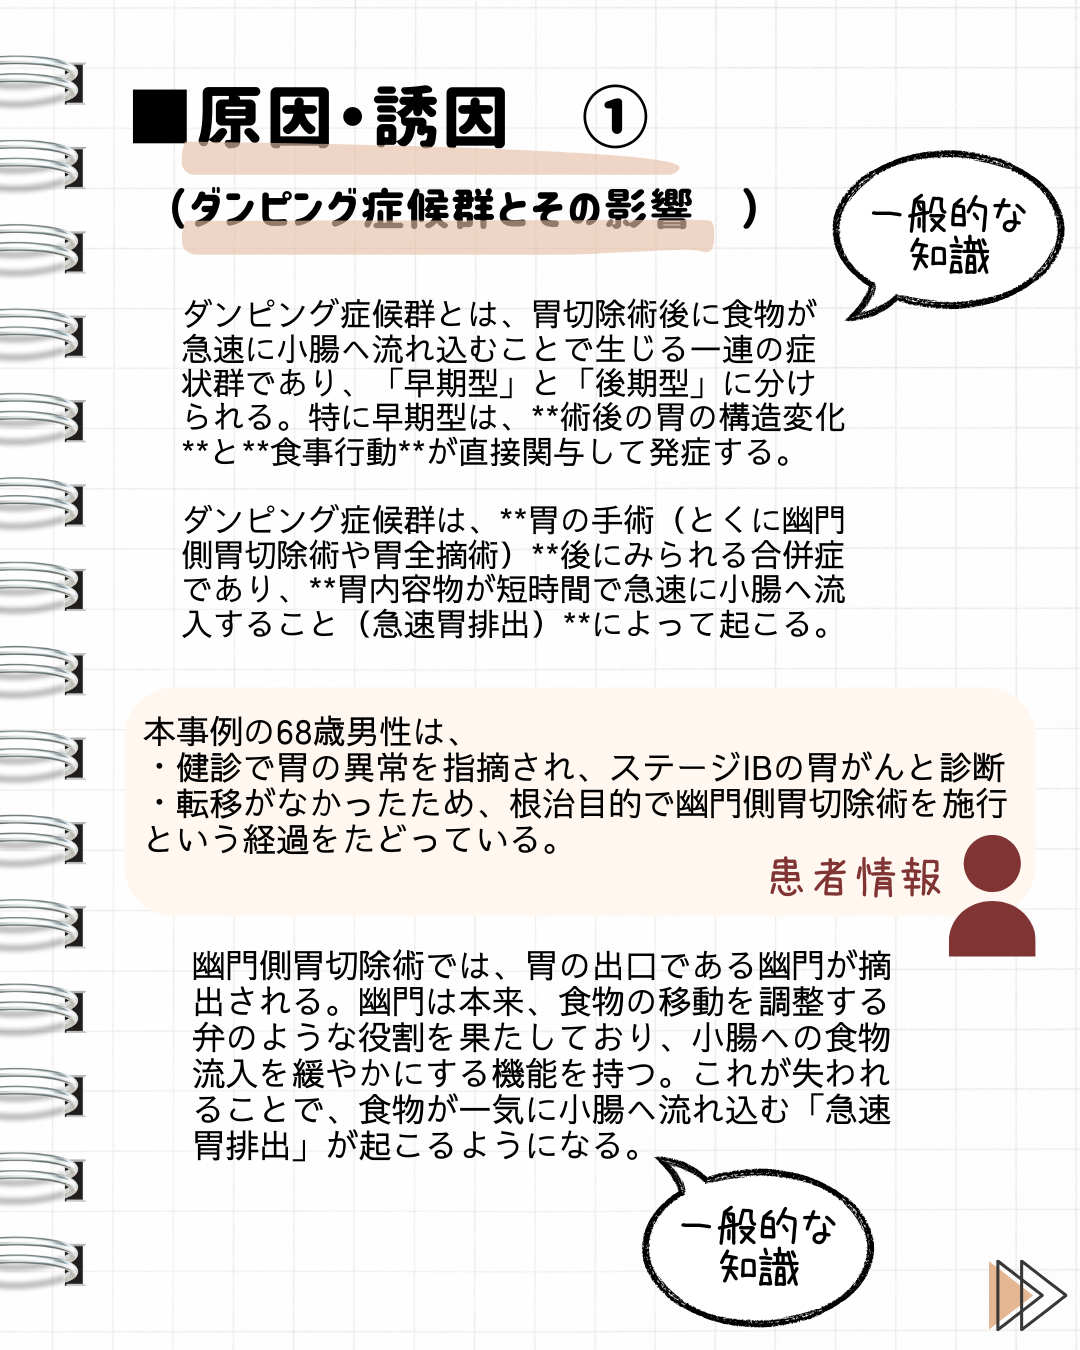 ■原因・誘因　①
（ダンピング症候群とその影響　）
一般的な
知識
ダンピング症候群とは、胃切除術後に食物が
急速に小腸へ流れ込むことで生じる一連の症
状群であり、「早期型」と「後期型」に分け
られる。特に早期型は、**術後の胃の構造変化
**と**食事行動**が直接関与して発症する。
ダンピング症候群は、**胃の手術（とくに幽門
側胃切除術や胃全摘術）**後にみられる合併症
であり、**胃内容物が短時間で急速に小腸へ流
入すること（急速胃排出）**によって起こる。
本事例の68歳男性は、
・健診で胃の異常を指摘され、ステージIBの胃がんと診断
・転移がなかったため、根治目的で幽門側胃切除術を施行
という経過をたどっている。
患者情報
幽門側胃切除術では、胃の出口である幽門が摘
出される。幽門は本来、食物の移動を調整する
弁のような役割を果たしており、小腸への食物
流入を緩やかにする機能を持つ。これが失われ
ることで、食物が一気に小腸へ流れ込む「急速
胃排出」が起こるようになる。
一般的な
知識